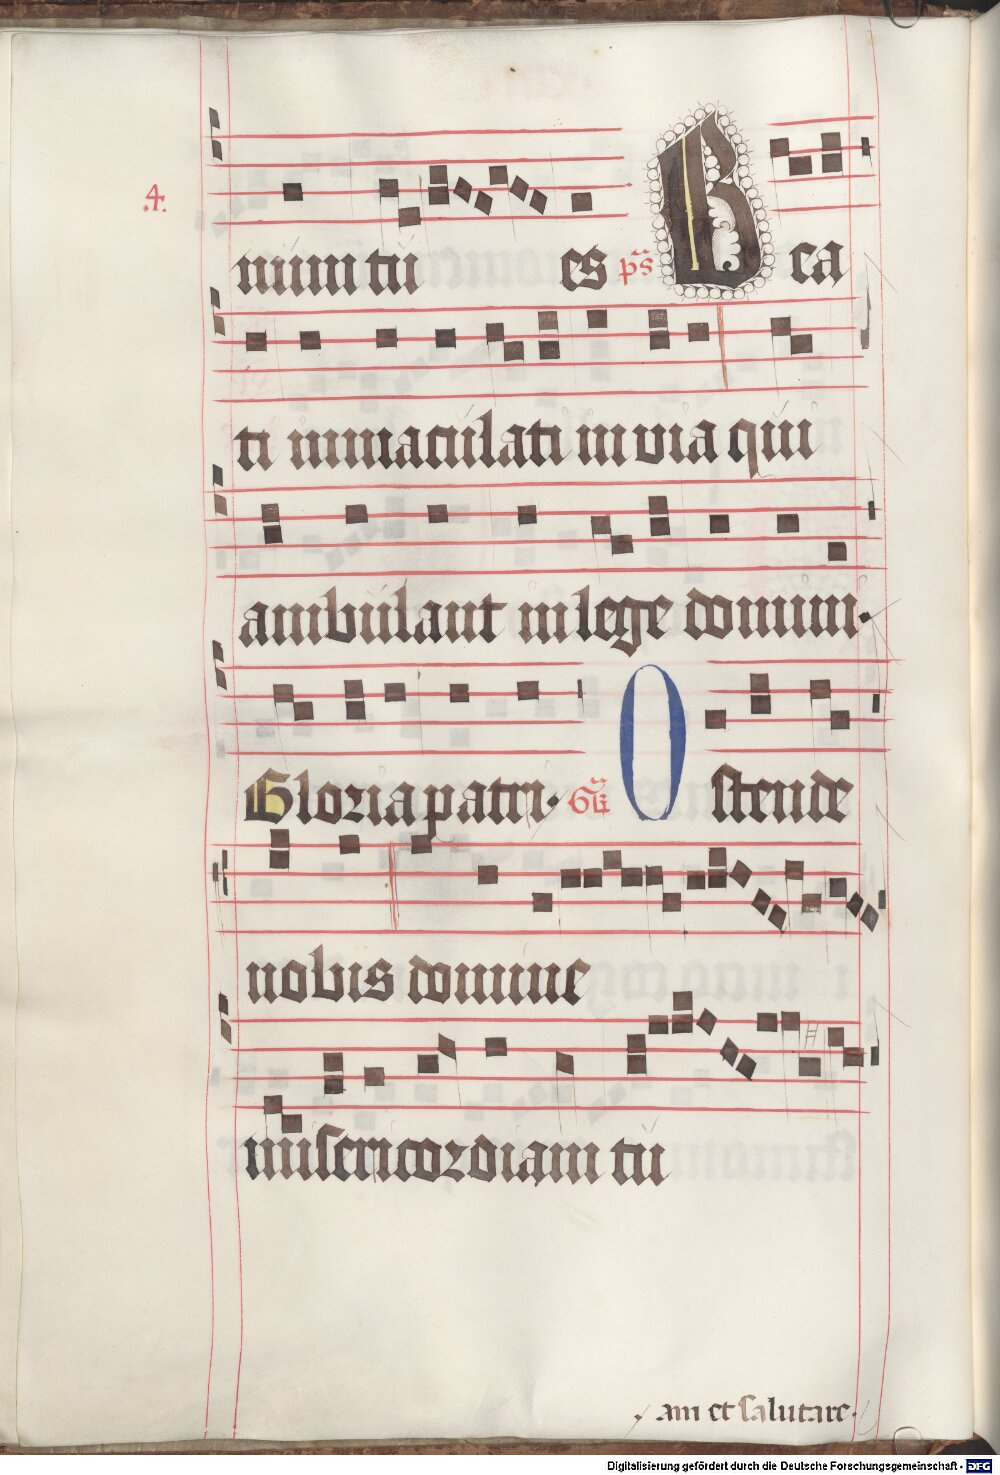 4.
minu tu es ps Bea
ti immaculati in via qui
ambulant in lege domini.
Gloria patri. Gr Ostende
nobis domine
misericordiam tu
am et salutare.
Digitalisierung gefördert durch die Deutsche Forschungsgemeinschaft - DFG